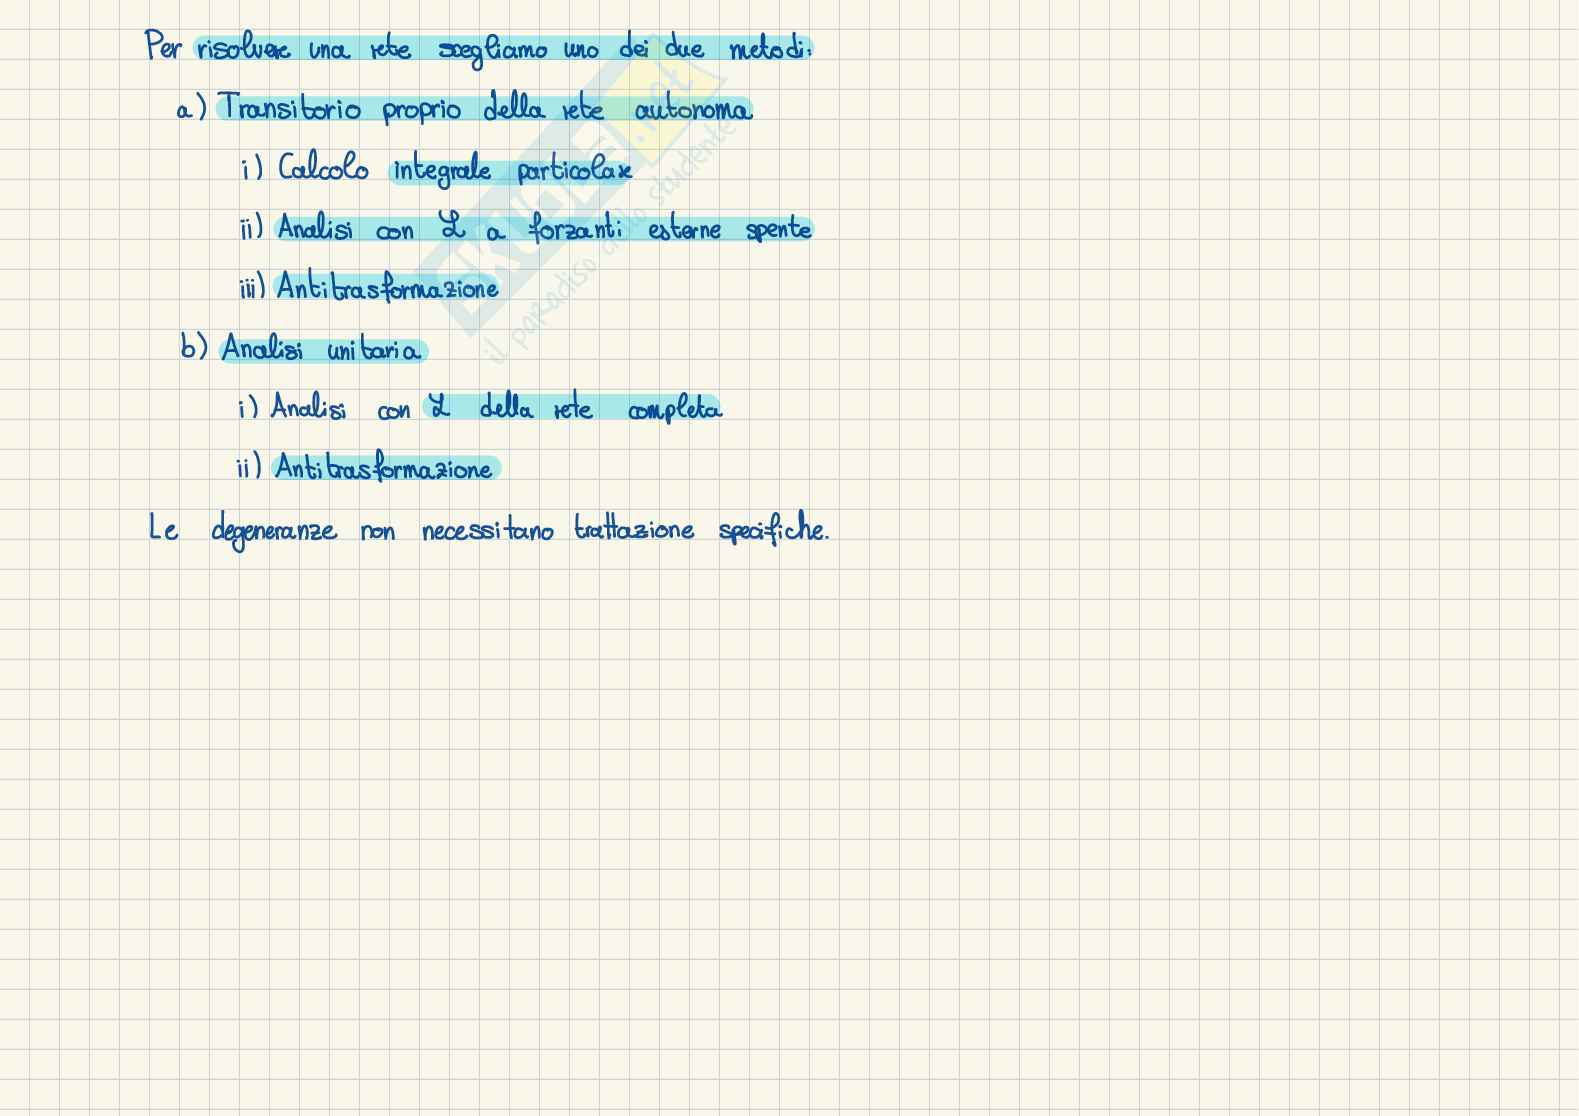 Per risolvere una rete scegliamo uno dei due metodi:
a) Transitorio proprio della rete autonoma
i) Calcolo integrale particolare
ii) Analisi con ℒ a forzanti esterne spente
iii) Antitrasformazione
b) Analisi unitaria
i) Analisi con ℒ della rete completa
ii) Antitrasformazione
Le degeneranze non necessitano trattazione specifiche.
SKUOLA.net
il paradiso dello studente